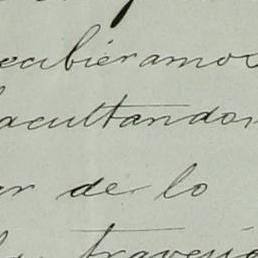 ecibiéramos
acultando
ar de lo
travesí